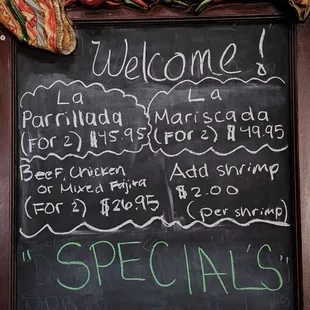 Welcome!
La
Parrillada
(For 2) $45.95
La
Mariscada
(For 2) $49.95
Beef, Chicken
or Mixed Fajita
(For 2) $26.95
Add shrimp
$2.00
(per shrimp)
"SPECIALS"